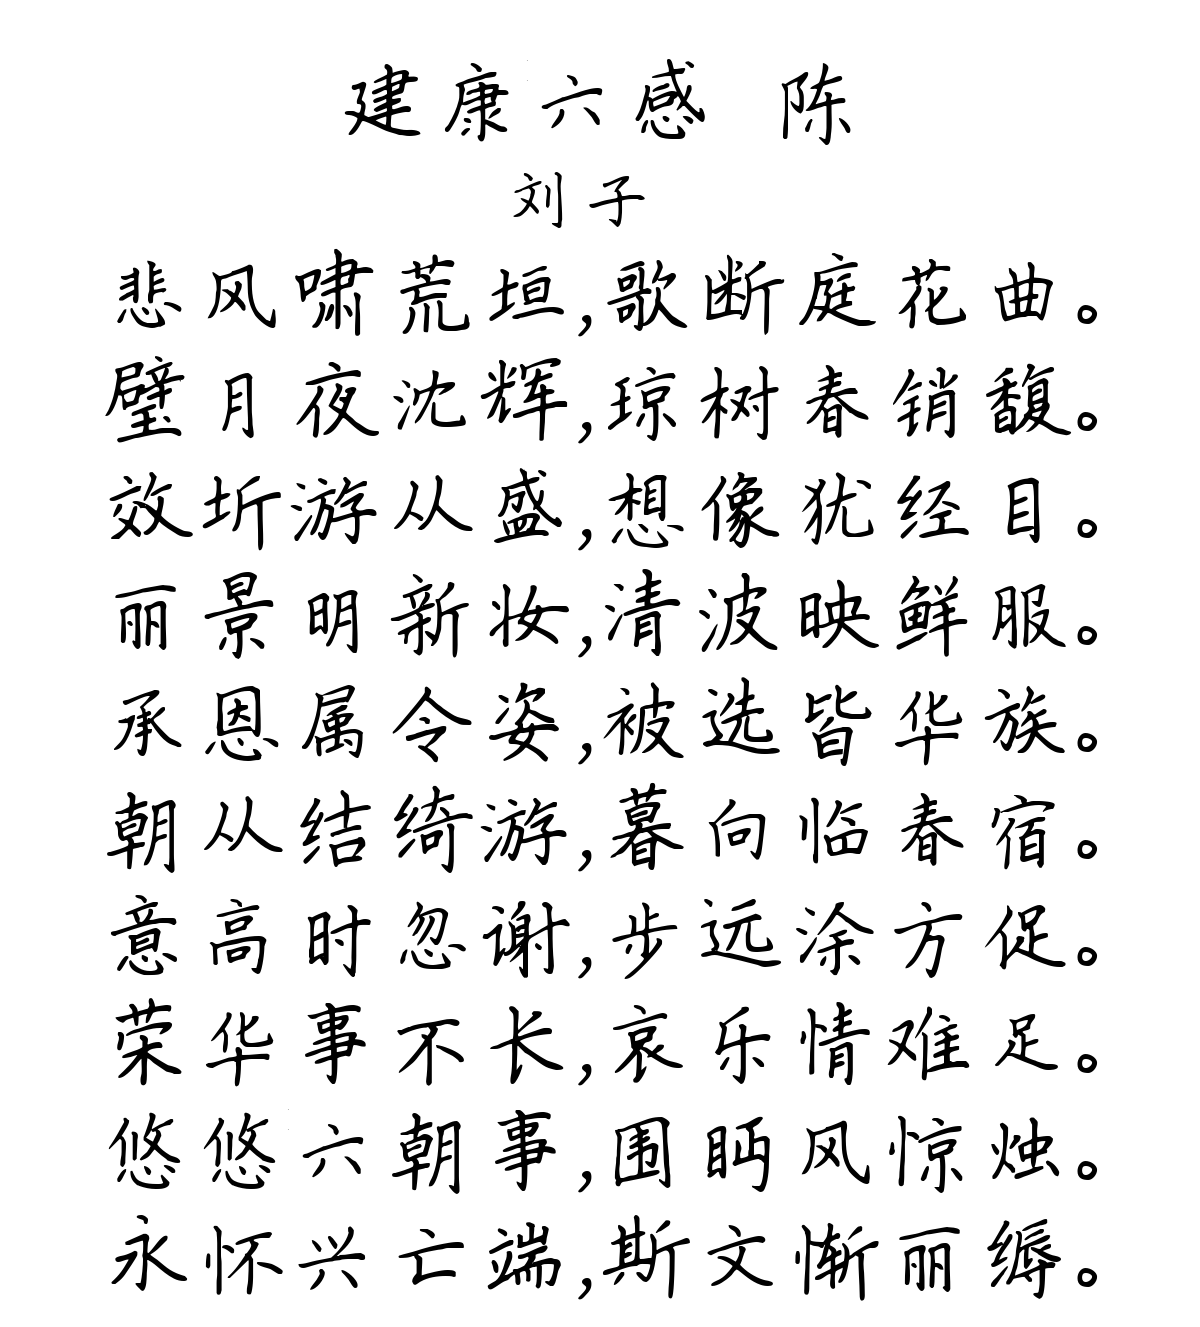 建康六感 陈
刘子
悲风啸荒垣,歌断庭花曲。
璧月夜沈辉,琼树春销馥。
效圻游从盛,想像犹经目。
丽景明新妆,清波映鲜服。
承恩属令姿,被选皆华族。
朝从结绮游,暮向临春宿。
意高时忽谢,步远涂方促。
荣华事不长,哀乐情难足。
悠悠六朝事,围眄风惊烛。
永怀兴亡端,斯文惭丽缛。